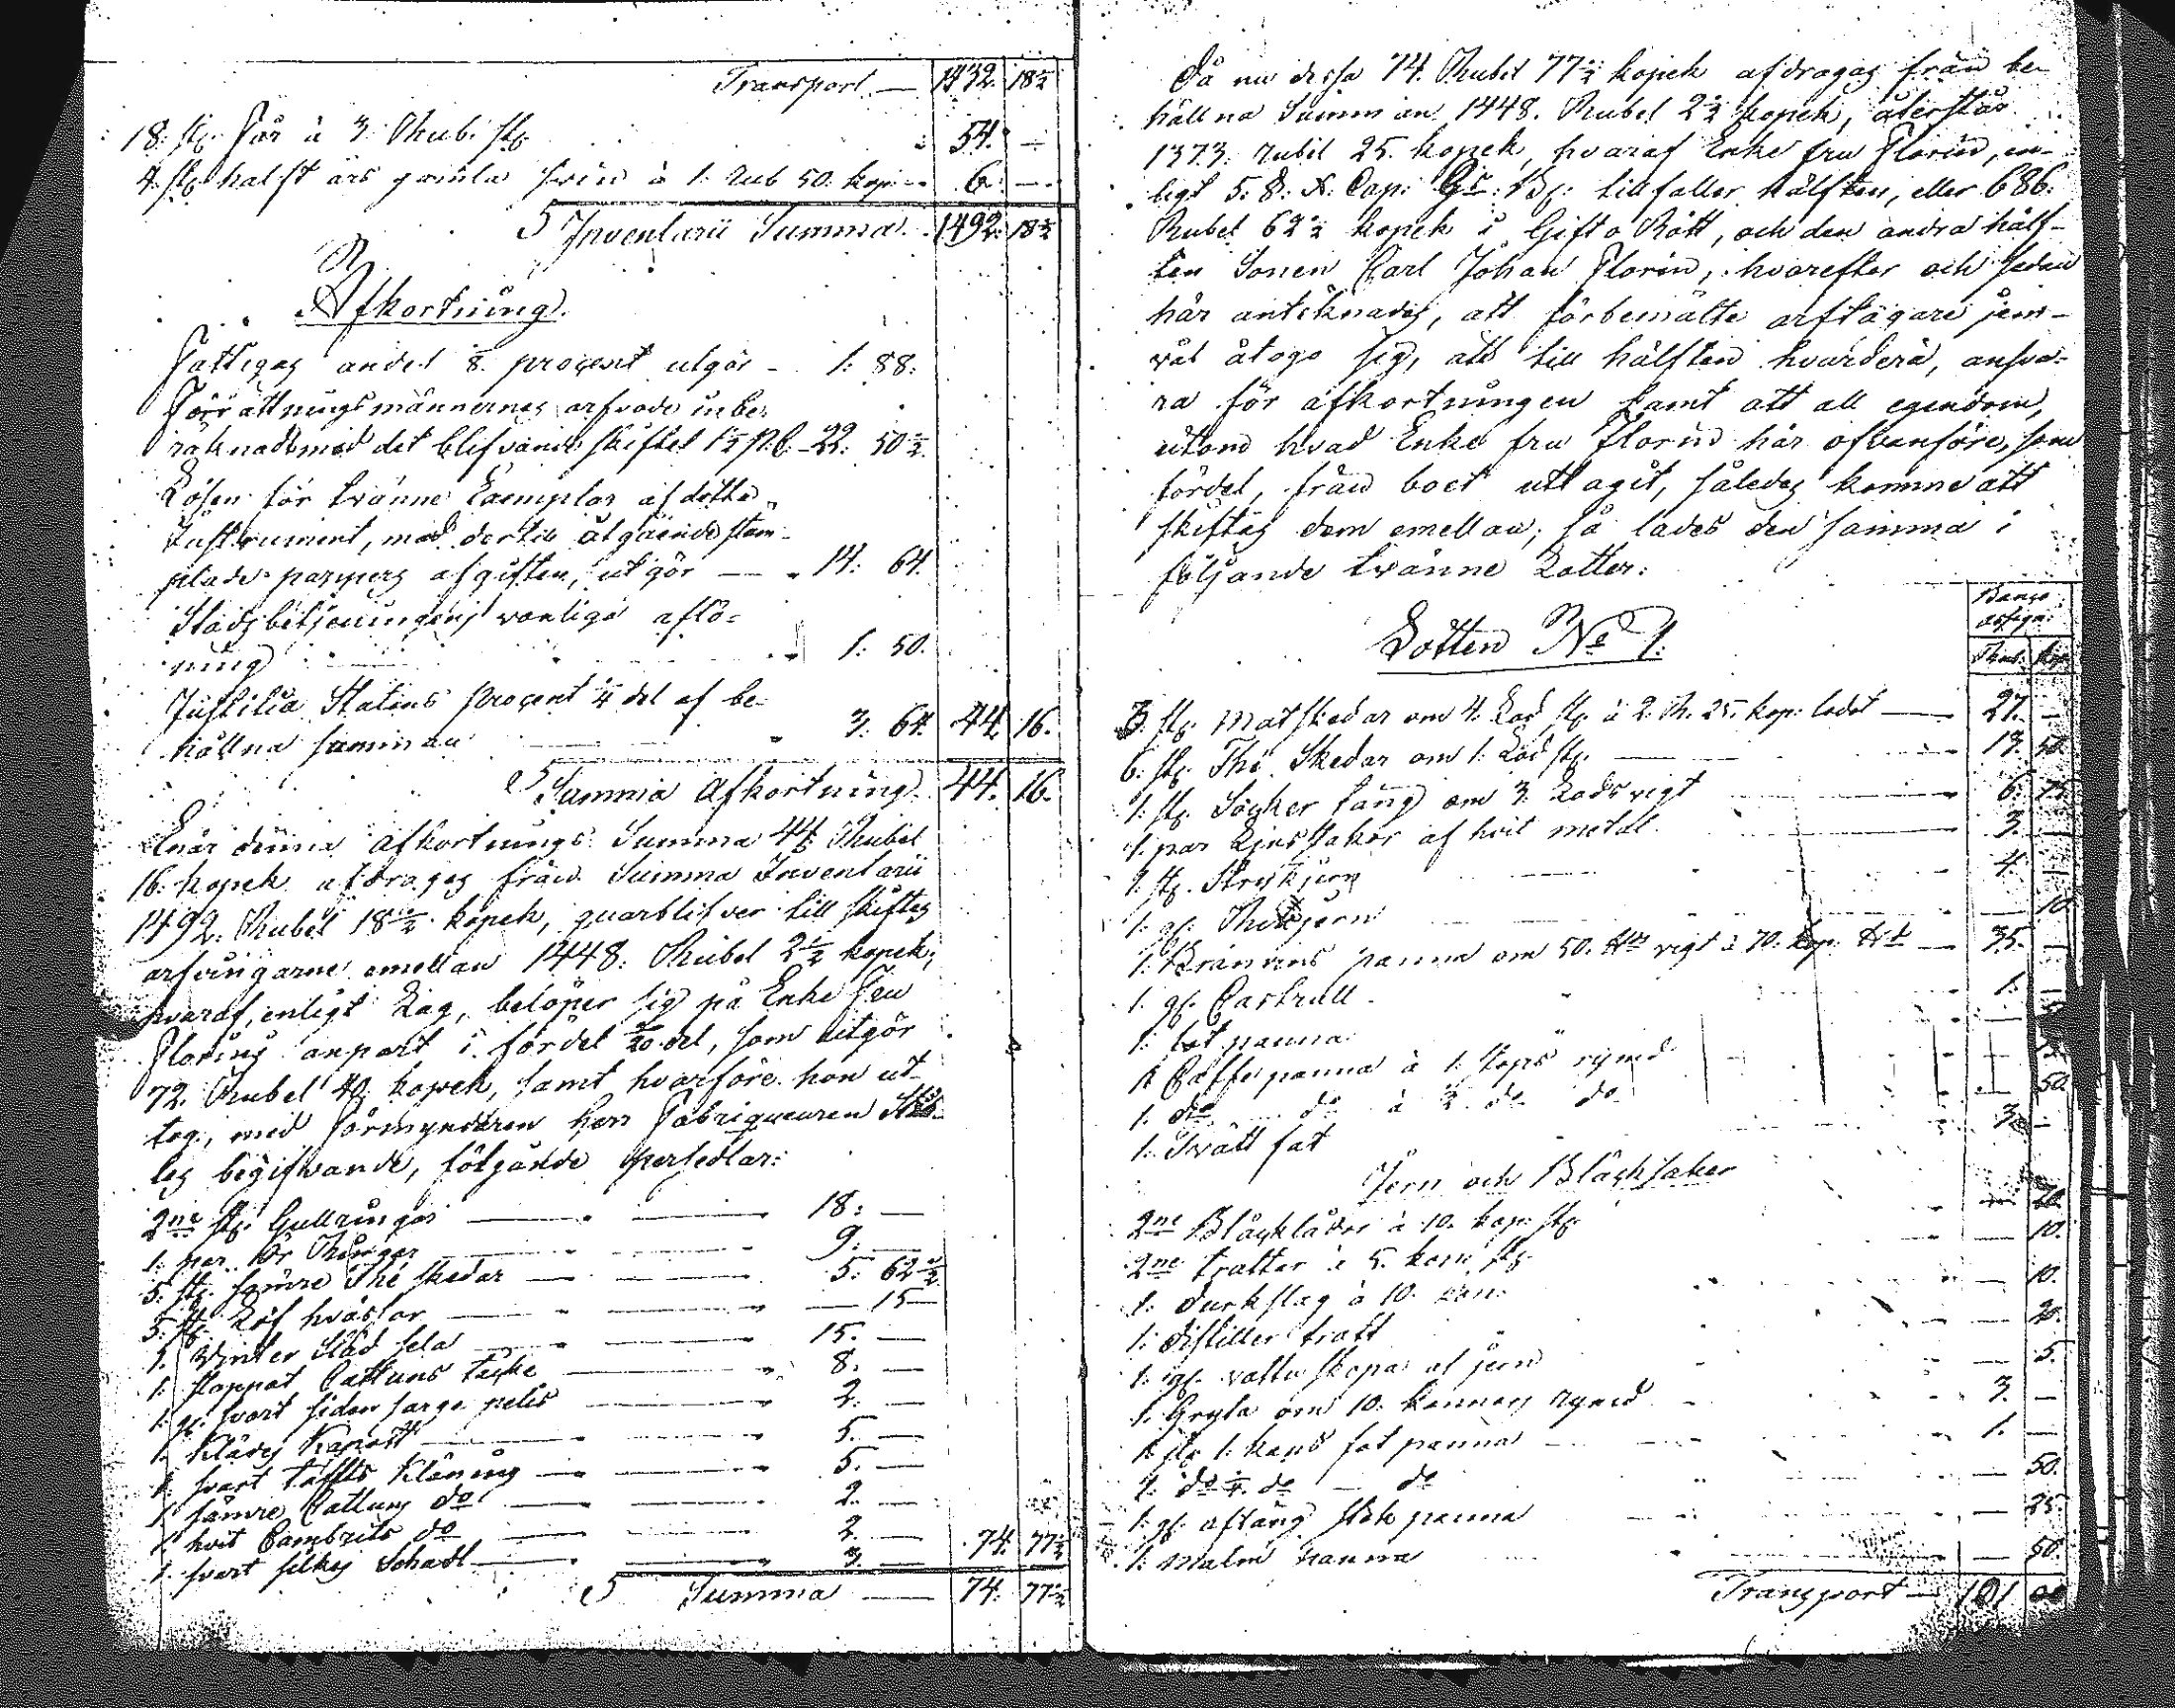 Transport — 1432. 18½
18: stÿ. Får à 3: Rub. stÿ. 54. —
4. stÿ. halft års gamla svin à 1. Rub 50. kop: 6. —
Inventarii Summa. 1492. 18½
Afkortning.
Fattigas andel 8. procent utgör – 1: 88:
Förrättningsmännernes arfvode inbe-
räknadt med det blifvande skiftet 1½ p. C. – 22: 50½
Lösen för tvänne Exemplar af detta
Instrument, med dertill åtgående stäm-
plade pappers afgiften, utgör — 14: 64.
Stadsbetjeningens vanliga aflö-
ning 1. 50.
Justitiæ Statens procent ¼ del af be-
hållna summan 3. 64. 44. 16.
Summa Afkortning. 44. 16.
Enär denna afkortnings Summa 44. Rubel
16. kopek afdrages från Summa Inventarii
1492. Rubel 18½ kopek, quarblifver till skiftes
arfvingarne emellan 1448: Rubel 2½ kopek;
hvaraf, enligt Lag, belöper sig på Enke Fru
Florins anpart i fördel 1/20 del, som utgör
72. Rubel 40. kopek, samt hvarföre hon ut-
tog, med Förmyndaren Herr Fabriqueuren
begifvande, följande persedlar:
2ne stÿ. Gullringar — 18: —
1: par. Ör Ringar — 9. —
5. stÿ. sämre Thé skedar — 5. 62½
5. stÿ. Löf hvastar — 15 —
1. Winter Släd sela — 15. —
1: stoppat Cattuns täcke — 8. —
1. gl. svart siden sarge pelis — 2. —
1. Klädes Kapott — 5. —
1. svart taffts Kläning — 5. —
1 sämre Cattuns do — 2. —
1. hvit Cambriks do — 2. —
1. svart silkes Schall — 3. — 74. 77½
Summa — 74. 77½
Då nu dessa 74. Rubel 77½ kopek afdrages från be-
hållna Summan 1448. Rubel 2½ kopek, återstår
1373. rubel 25. kopek, hvaraf Enke fru Florin, en-
ligt 5. §. X. Cap: Gs: B: tillfaller hälften, eller 686:
Rubel 62½ kopek i Gifto Rätt, och den andra hälf-
ten Sonen Carl Johan Florin, hvarefter och sedan
här antecknades, att förbemälte arftagare jem-
väl åtogo sig, att till hälften hvardera, ansva-
ra för afkortningen samt att all egendom,
utom hvad Enke fru Florin här ofvanföre, som
fördel, från boet uttagit, således komme att
skiftas dem emellan; så lades den samma i
följande tvänne Lotter:
Banco assign:
Lotten No 1.
Rub. Kop
3. stÿ. matskedar om 4. Lod stÿ. à 2. R. 25. kop: lodet — 27. —
6. stÿ. Thé Skedar om 1. Lod stÿ. — 13. 50.
1. stÿ. Socker tång om 3. Lods vigt 6. 75
1. par Ljusstakar af hvit metal. 3. —
1. stÿ. Strykjern 4. —
1. gl. jern — 10
1. Bränvins panna om 50. vigt à 70. kop: 35. —
1. gl. Castrull. 1. —
1: panna
1. Caffepanna à 1. stops rymd
1. do do à ½ do do 50.
1. Tvätt fat 3. —
Jern och Bläcksaker
2ne Bläcklådor à 10. kop: stÿ. — 20.
2ne tratter à 5. kop: stÿ. — 10.
1. durkslag à 10. kop: — 10.
1. distiller tratt — 20.
1. gl. vattu skopa af jern — 5.
1. Gryta om 10. kannors rymd 3. —
1. stÿ 1. kans fot panna 1. —
1. do ½ do — do — 50.
1. gl. aflång stek panna — 25.
1. malm panna — 50.
Transport — 101